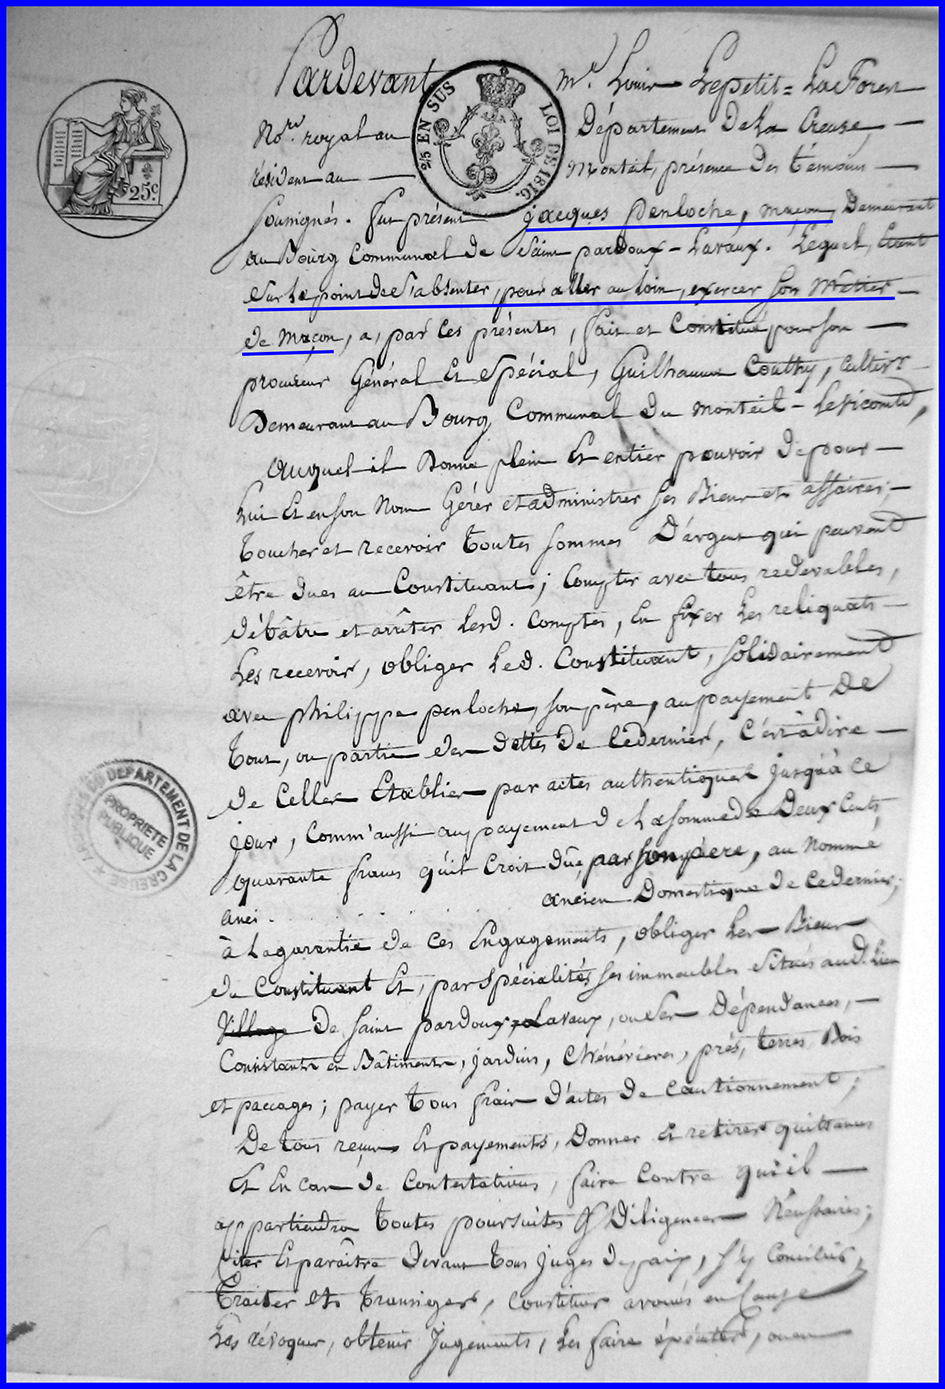 Pardevant Me. Louis Lepetit = LaForest
2/5 EN SUS
LOI DE 1816.
25c.
Nore. royal au Département De La Creuse —
résident au — Monteil, présence des témoins —
soussignés. fut présent jacques penloche, maçon, Demeurant
au Bourg Communal de Saint pardoux - Lavaux. Lequel, Etant
Sur le point de S'absenter, pour aller au loin, exercer son Métier —
de Maçon, a, par ces présentes, fait et Constitué pour son —
procureur Général Et Spécial, Guilhaume Couthy, cultivr. —
Demeurant au Bourg Communal Du Monteil - Levicomte,
Auquel il Donne plein Et entier pouvoir De pour —
Lui Et en son Nom Gérer et administrer ses Biens et affaires; —
Toucher et recevoir toutes sommes D'argent qui peuvent
être dues au Constituant; Compter avec tous redevables,
débâtre et arrêter lesd. Comptes, en fixer les reliquats —
Les recevoir, obliger led. Constituant, solidairement
avec philippe penloche, son père, au payement de
tous, ou partie des dettes de ce dernier, C'est-à-dire —
de Celles Etablies par actes authentiques jusqu'à ce
jour, Comm'aussi au payement de la somme de Deux Cents
quarante francs qu'il Croit dûe, par son père, au Nommé
anci. . . . . . . . ancien Domestique de ce dernier;
à La garantie de ces Engagements, obliger Les Biens
du Constituant Et, par Spécialités ses immeubles Situés aud. Lieu
Village De Saint pardoux = Lavaux, ou ses Dépendances, —
Consistants en Bâtiments, jardins, Chénévières, prés, terres, Bois
et pacages; payer tous frais d'actes de cautionnement;
De tous reçus Et payements, Donner et retirer quittances
Et En cas de Contestations, faire contre qu'il —
appartiendra toutes poursuites & Diligences Nécessaires;
Citer Et paraître devant tous juges de paix, s'y Concilier,
Traiter et Transiger, Constituer avoués en Cause
Les révoquer, obtenir jugements, les faire éxécuter, ou en
ARCHIVES DU DEPARTEMENT DE LA CREUSE
PROPRIETE
PUBLIQUE